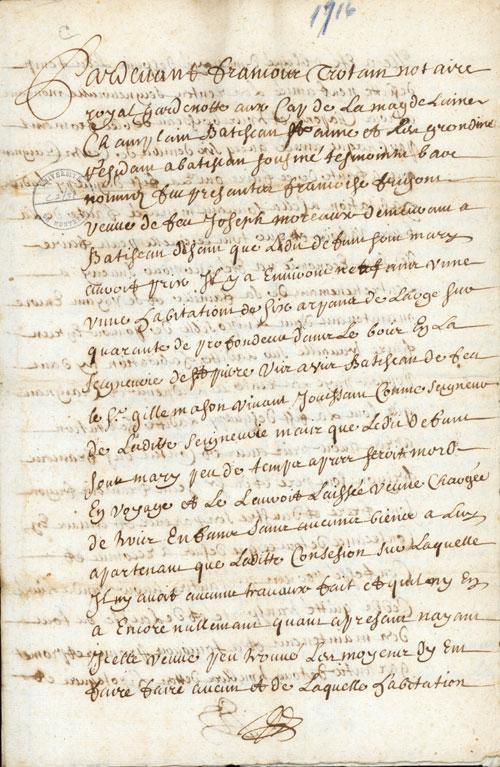 1716
Pardevant franciour Trotain notaire
royal gardenotte aux Cap de La magdelainer
Champlain Batiscan Ste anne et Les grondine
résidant a batiscan soussiné tesmoinn bas
nommer fut presantes francoise frigon
veuve de feu Joseph moreaux demeurant a
Batiscan disant que Ledit defunt son mary
auroit pris Il y a Environt neuf ans vunne
vunne habitation de six arpans de Large sur
quarante de profondeur dans Le bour En La
Seigneurie de St pierre vis a vis Batiscan de feu
le Sr. gille mason vivant Jouissant Comme seigneur
de Laditte Seigneurie mais que Ledit defunt
son mary peu de temps apres seroit mord
En voyage et Le Lauroit Laissée veuve Chargée
de trois Enfans sans aucuns biens a Luy
apartenant que Laditte Consesion sur Laquelle
Il ny avoit aucuns travaux fait et quil ny En
a Encore nullemant quant apresant nayant
Icelle veuve peu trouvé Les moyens dy En
faire faire aucun et de Laquelle habitation